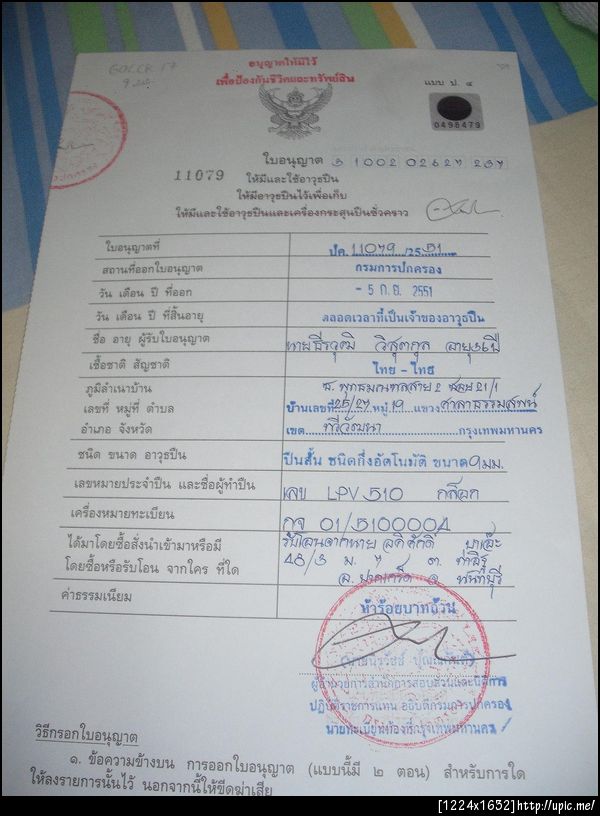 GOLCK 17
อนุญาตให้มีไว้
เพื่อป้องกันชีวิตและทรัพย์สิน
แบบ ป. ๔
0498479
ใบอนุญาต
11079
ให้มีและใช้อาวุธปืน
ให้มีอาวุธปืนไว้เพื่อเก็บ
ให้มีและใช้อาวุธปืนและเครื่องกระสุนปืนชั่วคราว
ใบอนุญาตที่ ปค.11079/2551
สถานที่ออกใบอนุญาต กรมการปกครอง
วัน เดือน ปี ที่ออก - 5 ก.ย. 2551
วัน เดือน ปี ที่สิ้นอายุ ตลอดเวลาที่เป็นเจ้าของอาวุธปืน
ชื่อ อายุ ผู้รับใบอนุญาต นายธีรวุฒิ วิสุตกุล
เชื้อชาติ สัญชาติ ไทย - ไทย
ภูมิลำเนาบ้าน ถ. พุทธมณฑลสาย 2 ซอย 21/1
เลขที่ หมู่ที่ ตำบล บ้านเลขที่ 25/27 หมู่ 19 แขวง ศาลาธรรมสพน์
อำเภอ จังหวัด เขต ทวีวัฒนา กรุงเทพมหานคร
ชนิด ขนาด อาวุธปืน ปืนสั้น ชนิดกึ่งอัตโนมัติ ขนาด 9 มม.
เลขหมายประจำปืน และชื่อผู้ทำปืน เลข LPV 510 กล๊อก
เครื่องหมายทะเบียน กจ 01/5100004
ได้มาโดยซื้อสั่งนำเข้ามาหรือมี รับโอนจากนาย
โดยซื้อหรือรับโอน จากใคร ที่ใด 48/3 ม. ต. ท่าอิฐ
อ. ปากเกร็ด จ. นนทบุรี
ค่าธรรมเนียม ห้าร้อยบาทถ้วน
ผู้อำนวยการสำนักการสอบสวนและนิติการ
ปฏิบัติราชการแทน อธิบดีกรมการปกครอง
นายทะเบียนท้องที่กรุงเทพมหานคร
วิธีกรอกใบอนุญาต
๑. ข้อความข้างบน การออกใบอนุญาต (แบบนี้มี ๒ ตอน) สำหรับการใด
ให้ลงรายการนั้นไว้ นอกจากนี้ให้ขีดฆ่าเสีย
[1224x1632]http://upic.me/